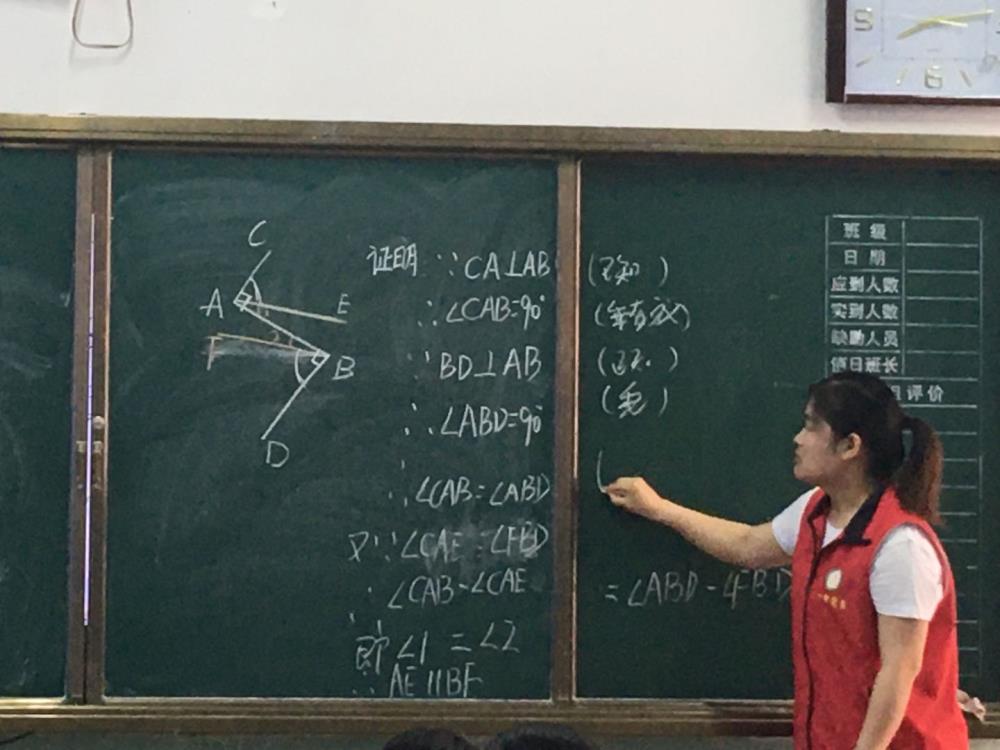 C
A
E
F
B
D
证明 ∵ CA⊥AB (已知)
∴ ∠CAB=90°
∵ BD⊥AB
∴ ∠ABD=90°
∴ ∠CAB=∠ABD (
又∵ ∠CAE=∠FBD
∴ ∠CAB-∠CAE =∠ABD-∠FBD
即 ∠1=∠2
∴ AE∥BF
班级
日期
应到人数
实到人数
缺勤人员
值日班长
评价
6